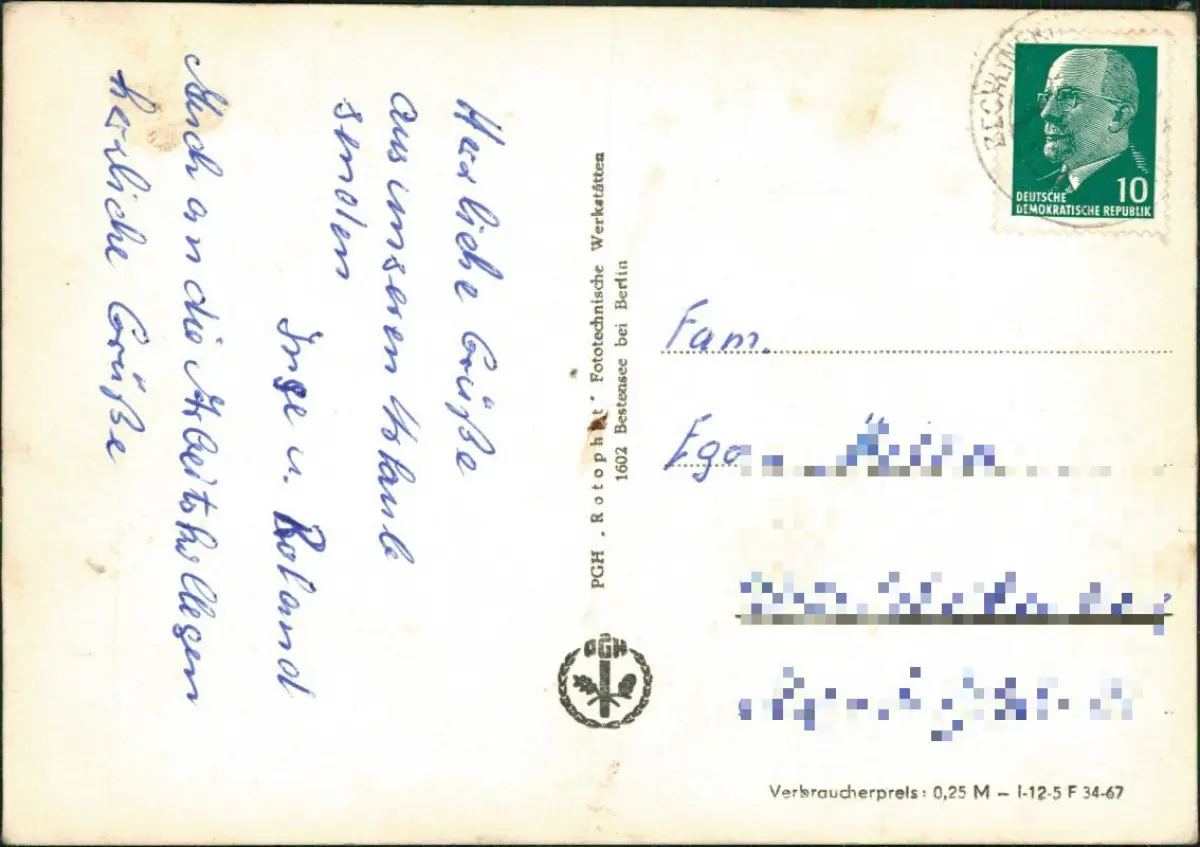 Herzliche Grüße
aus unseren Urlaub
senden
Inge u. Roland
Auch an die Arbeitskollegen
herzliche Grüße
PGH „Rotophot“ Fototechnische Werkstätten
1602 Bestensee bei Berlin
PGH
DEUTSCHE
DEMOKRATISCHE REPUBLIK
10
Fam.
Verbraucherpreis: 0,25 M – I-12-5 F 34-67